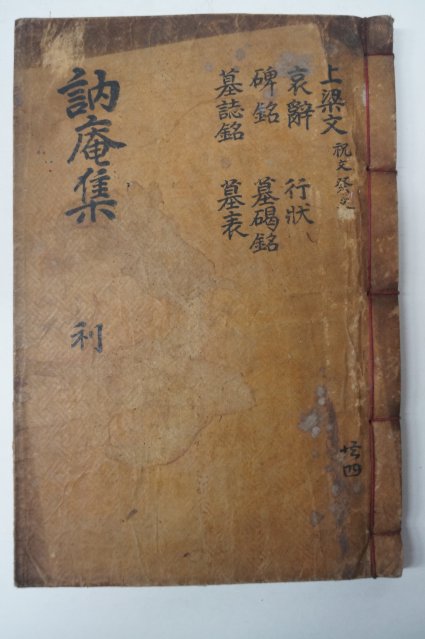 上梁文 祝文 祭文
哀辭 行狀
碑銘 墓碣銘
墓誌銘 墓表
訥庵集 利
共四